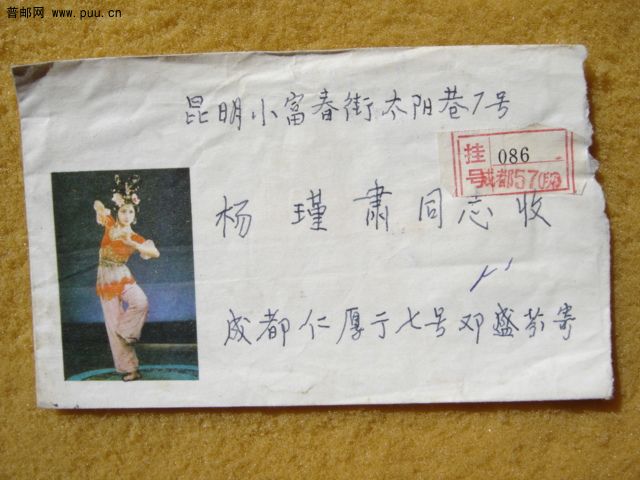 普邮网 www.puu.cn
昆明小富春街太阳巷7号
挂号 086
成都57(支)
杨瑾肃同志收
成都仁厚亍七号邓盛芬寄